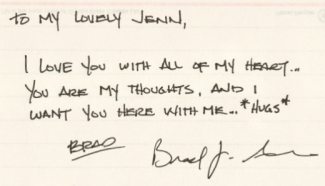 TO MY LOVELY JENN,
I LOVE YOU WITH ALL OF MY HEART...
YOU ARE MY THOUGHTS, AND I
WANT YOU HERE WITH ME... *HUGS*
BRAD
Brad J.